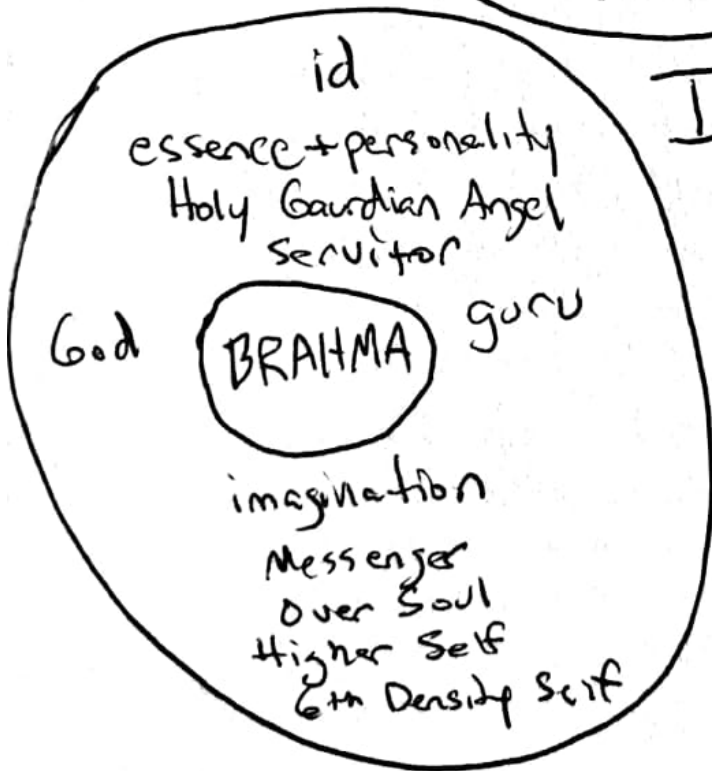 id
essence + personality
Holy Gaurdian Angel
servitor
God
BRAHMA
guru
imagination
Messenger
Over Soul
Higher Self
6th Density Self